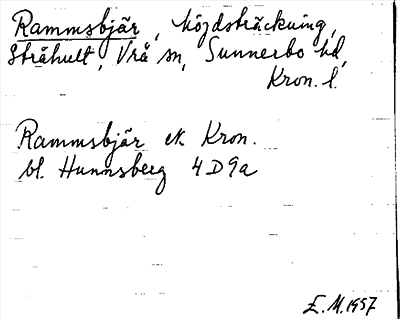 Rammsbjär, höjdsträckning,
Stråhult, Vrå sn, Sunnerbo hd,
Kron. l.
Rammsbjär ek Kron.
bl. Hunnsberg 4D9a
E.M. 1957